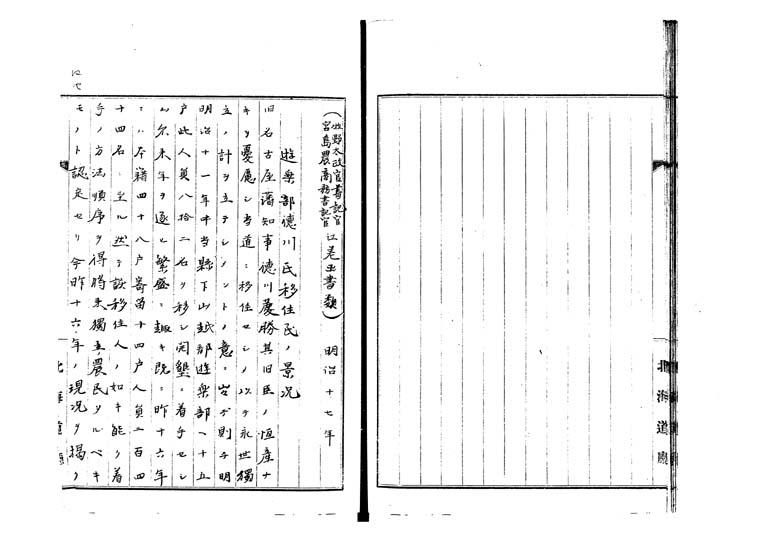 北海道廳
(牧野太政官書記官
宮島農商務書記官 江差出書類) 明治十七年
遊楽部徳川氏移住民ノ景况
旧名古屋藩知事徳川慶勝其旧臣ノ恒産ナ
キヲ憂慮シ当道ニ移住セシメ以テ永世獨
立ノ計ヲ立テシメントノ意ニ出デ則チ明
明治十一年中当縣下山越郡遊楽部ヘ十五
戸此人員八拾二名ヲ移シ開墾ニ着手セシ
ム尓来年ヲ逐ヒ繁盛ニ趣キ既ニ昨十六年
ニハ本籍四十八戸寄留十四戸人員二百四
十四名ニ至ル然テ該移住人ノ如キ能ク着
手ノ方法順序ヲ得将来獨立農民タルベキ
モノト認定セリ今昨十六年ノ現况ヲ掲ク